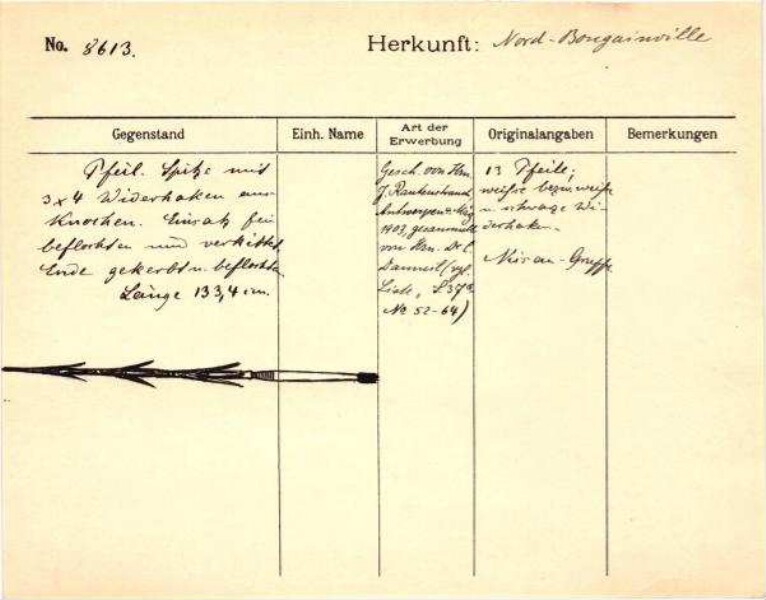 No. 8613.
Herkunft: Nord-Bougainville
Gegenstand
Einh. Name
Art der
Erwerbung
Originalangaben
Bemerkungen
Pfeil. Spitze mit
3 x 4 Widerhaken aus
Knochen. Einsatz fein
beflochten und verkittet
Ende gekerbt u. beflochten
Länge 133,4 cm.
Gesch. von Hrn.
J. Rautenstrauch,
Antwerpen
1903, gesammelt
von Hrn. Dr.
(vgl.
Liste, S 37
No 52-64)
13 Pfeile;
weiße bezw. weiße
u. schwarze Wi-
derhaken.